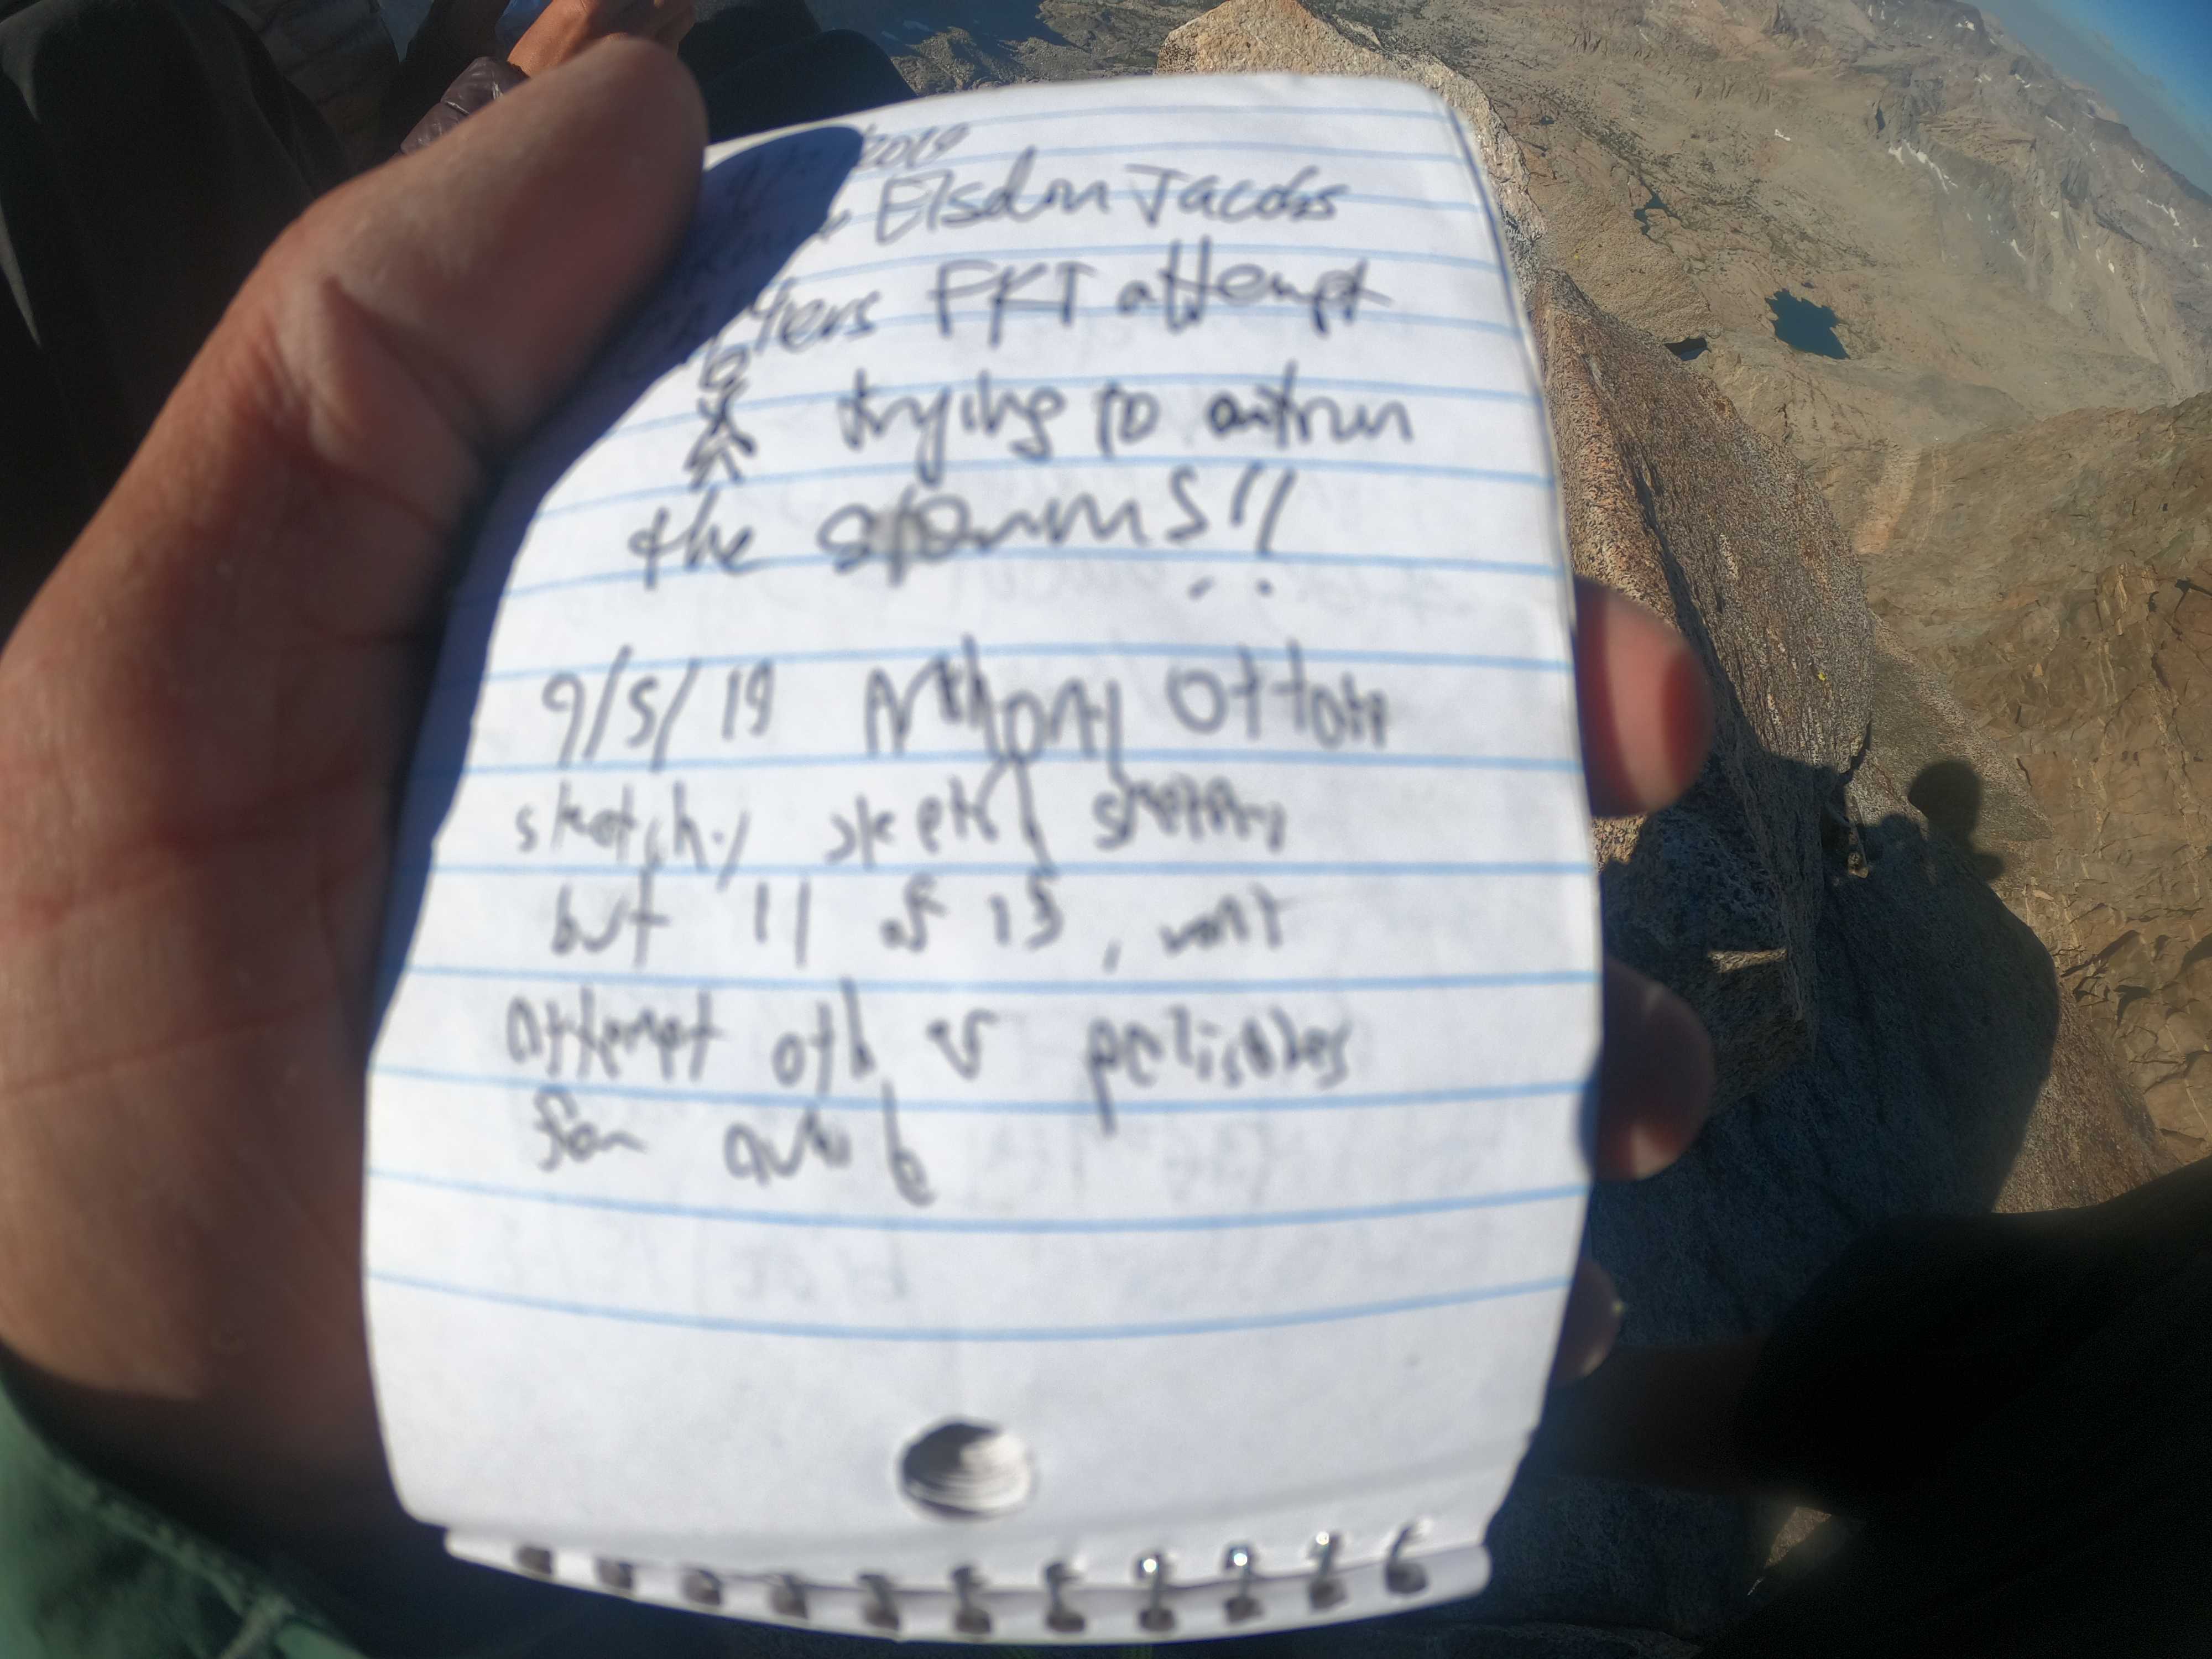 /2019
Elsdon Jacobs
FKT attempt
trying to outrun
the storms!!
9/5/19 Anthony
sketchy sketchy sketchy
but 11 of 15, won't
attempt oth r
for awhile